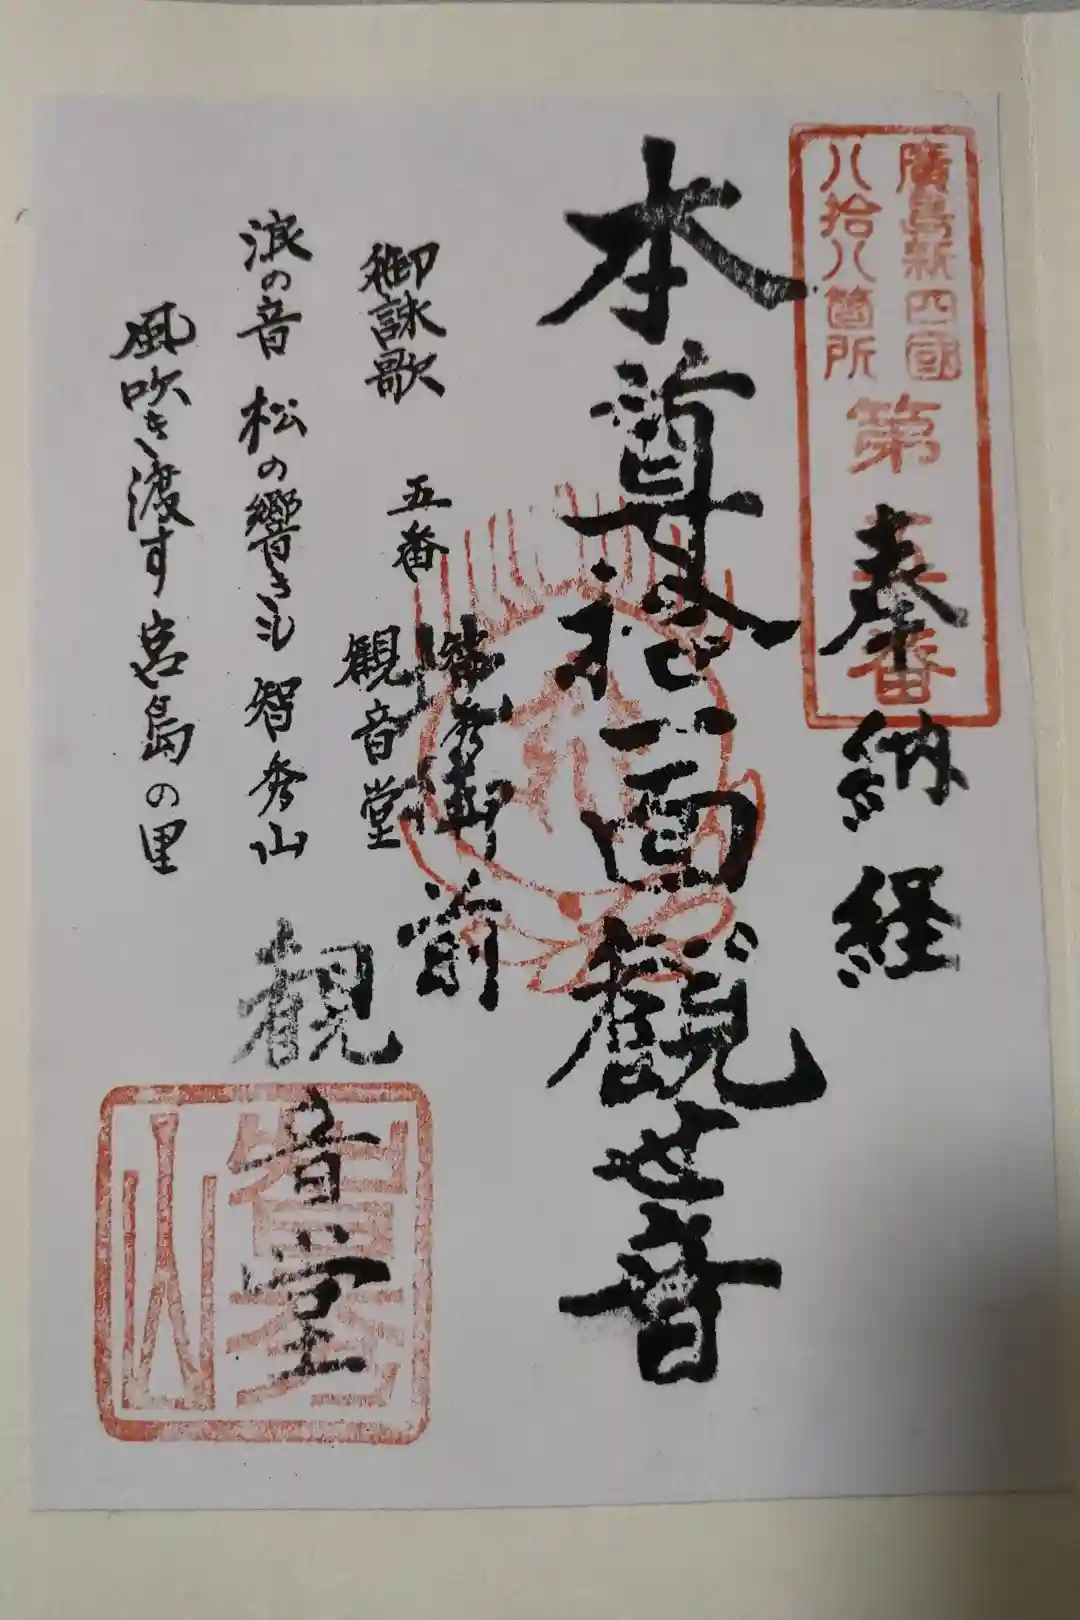 廣島新四國
八拾八箇所
第五番
奉納経
本尊拾一面観世音
地御前
観音堂
御詠歌 五番 智秀山
観音堂
浪の音 松の響きも 智秀山
風吹き渡す宮島の里
智秀山